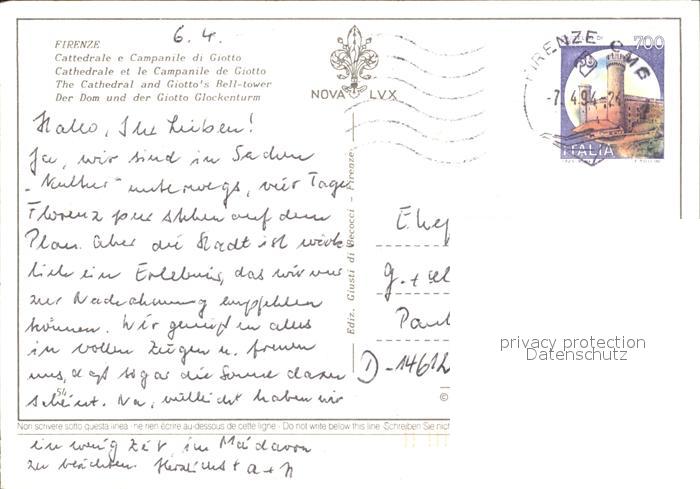 6.4.
FIRENZE
Cattedrale e Campanile di Giotto
Cathedrale et le Campanile de Giotto
The Cathedral and Giotto's Bell-tower
Der Dom und der Giotto Glockenturm
NOVA LVX
FIRENZE CMP
-7.4.94-24
700
ITALIA
Hallo, Ihr Lieben!
Ja, wir sind in Sachen
"Kultur" unterwegs, vier Tage
Florenz per stehen auf dem
Plan. Aber die Stadt ist wirk-
lich ein Erlebnis, das wir nur
zur Nachahmung empfehlen
können. Wir genießen alles
in vollen Zügen u. freuen
uns, daß sogar die Sonne dazu
scheint. Na, vielleicht haben wir
Ediz. Giusti di Becocci - Firenze
54
©
D-14612
privacy protection
Datenschutz
Non scrivere sotto questa linea - ne rien écrire au-dessous de cette ligne - Do not write below this line - Schreiben Sie nicht
ein wenig Zeit, in
zu Herzlichst A + H